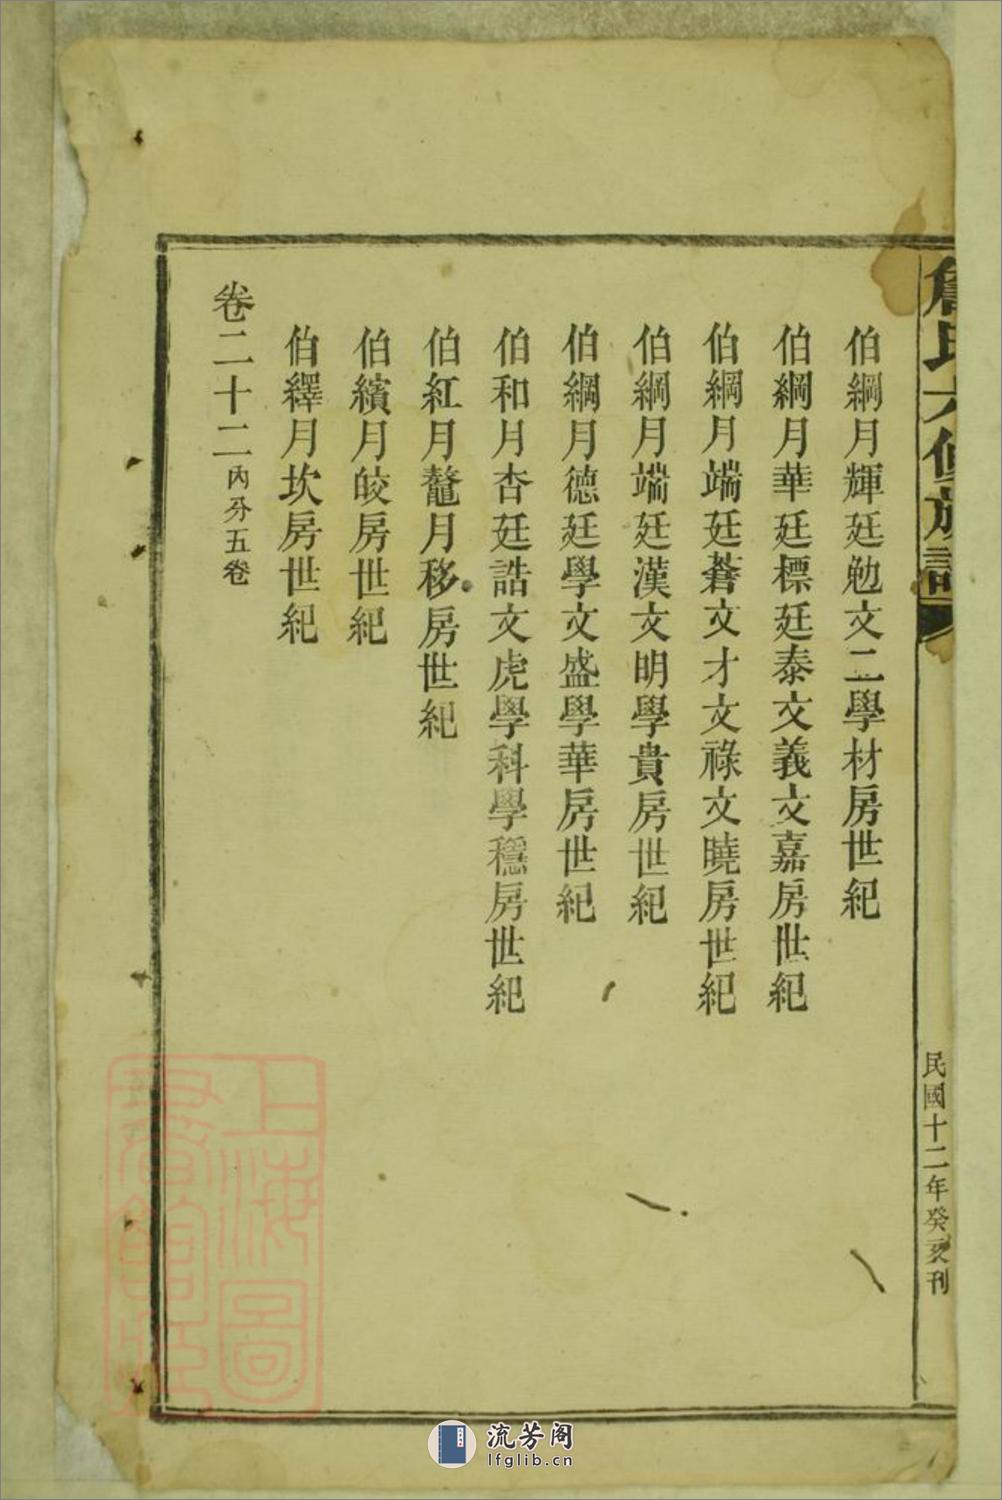 詹氏六修族譜
民國十二年癸亥刊
伯綱月輝廷勉文二學材房世紀
伯綱月華廷標廷泰文義文嘉房世紀
伯綱月端廷蒼文才文祿文曉房世紀
伯綱月端廷漢文明學貴房世紀
伯綱月德廷學文盛學華房世紀
伯和月杏廷誥文虎學科學穩房世紀
伯紅月鼇月移房世紀
伯繽月皎房世紀
伯繹月坎房世紀
卷二十二內分五卷
上海圖
書館藏
流芳阁
lfglib.cn